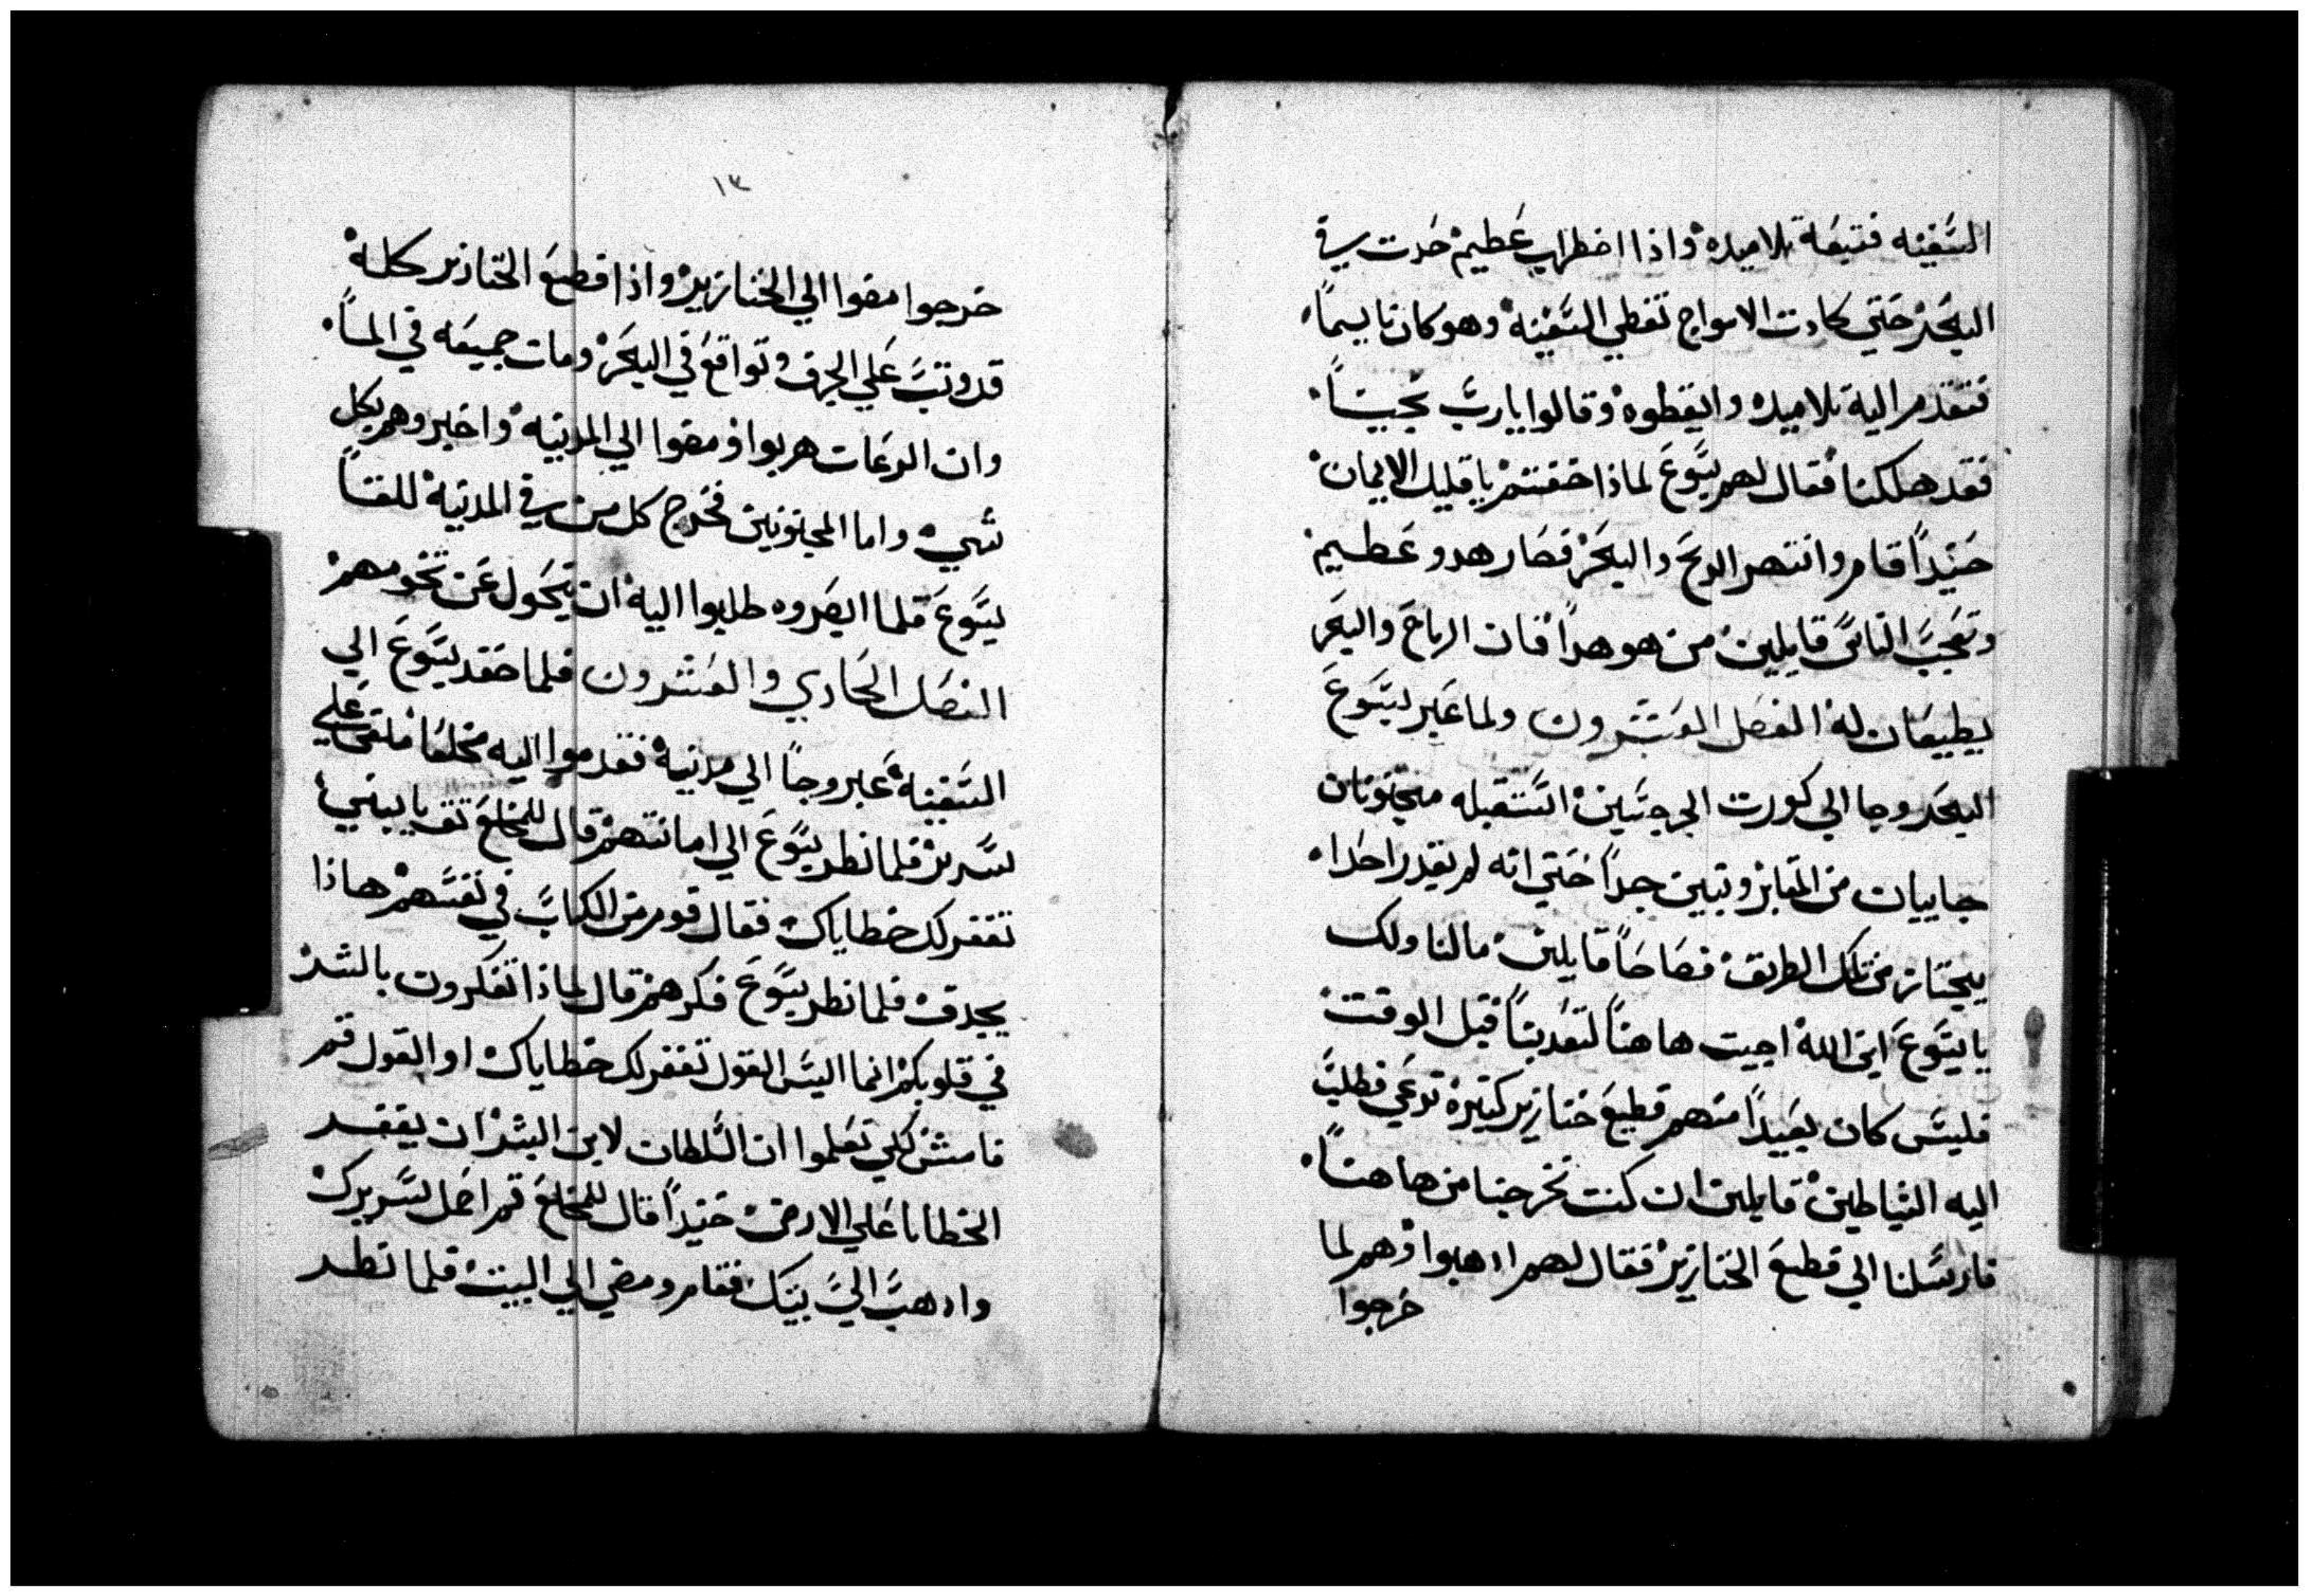 السَّفينه فتبعَة تلاميده واذا اضطراب عَظيم حَدت في
البحَر حَتي كادت الامواج تغطي السَّفينه وهو كان نايماً
فتقدم الية تلاميده وايقطوه وقالوا يا ربَّ نجينَا
فقد هلكنا فقال لهم يسَّوعَ لماذا خفتم يا قليل الايمان
حَنيداً قام وانتهر الريَح والبحَر فصَار هدو عَظيم
وتعَجبَّ الناسَّ قايلين من هو هداً فان الرياحَ والبحَر
يطيعَان له الفصَل العَشَّرون ولما عَبر يسَّوعَ
البحَر وجا الي كورت الجرجسَّين استَّقبله مجنونان
جاييان من المقابر وتبين جداً حَتي انه لم يقدر احَداً
يجتاز من تلك الطريق فصَاحَاً قايلين مالنا ولك
يا يسَّوعَ ابن الله اجيت هاهناً لتعَدبناً قبل الوقت
فليسَّ كان بعَيداً منهم قطيعَ خنازير كتيره ترعَي فطلبَّ
اليه الشياطين قايلين ان كنت تخرجنا من هاهناً
فارسَّلنا الي قطيعَ الخنازير فقال لهم ادهبوا وهم لما
خرجوا
١٣
خرجوا مضوا الي الخنازير واذا قطيعَ الخنازير كله
قد وتبَّ عَلي الجرف وتواقعَ في البحَر ومات جميعَه في الماً
وان الرعَات هربوا ومضوا الي المدنيه واخبروهم بكل
شيء واما المجنونين فخَرج كل من في المدنيه للقاً
يسَّوعَ فلما ابصَروه طلبوا اليه ان يتحَول عَن تخومهم
الفصَل الحَادي والعَشرون فلما صَعد يسَّوعَ الي
السَّفينه عَبر وجاً الي مدنيه فقدموا اليه مخلعَا ملقي عَلي
سَّرير فلما نظر يسَّوعَ الي امانتهم قال للمخلعَ تق يا ببني
تغفر لك خطاياك فقال قوم من الكتابَّ في نفسَّهم هاذا
يجدف فلما نظر يسَّوعَ فكرهم قال لماذا تفكرون بالشر
في قلوبكم انما اليسَّ القول تغفر لك خطاياك او القول قم
فامش لكي تعَلموا ان السَّلطان لابن البشر ان يغفر
الخطايا عَلي الارض حَنيداً قال للمخلعَ قم احَمل سَّريرك
وادهبَّ اليَّ بيتك فقام ومضي الي البيت فلما نظر